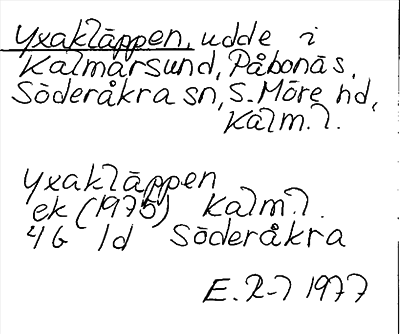 Yxakläppen, udde i
Kalmarsund, Påbonäs,
Söderåkra sn, S. Möre hd,
Kalm. l.
Yxakläppen
ek (1975) Kalm. l.
4G 1d Söderåkra
E. R-l 1977